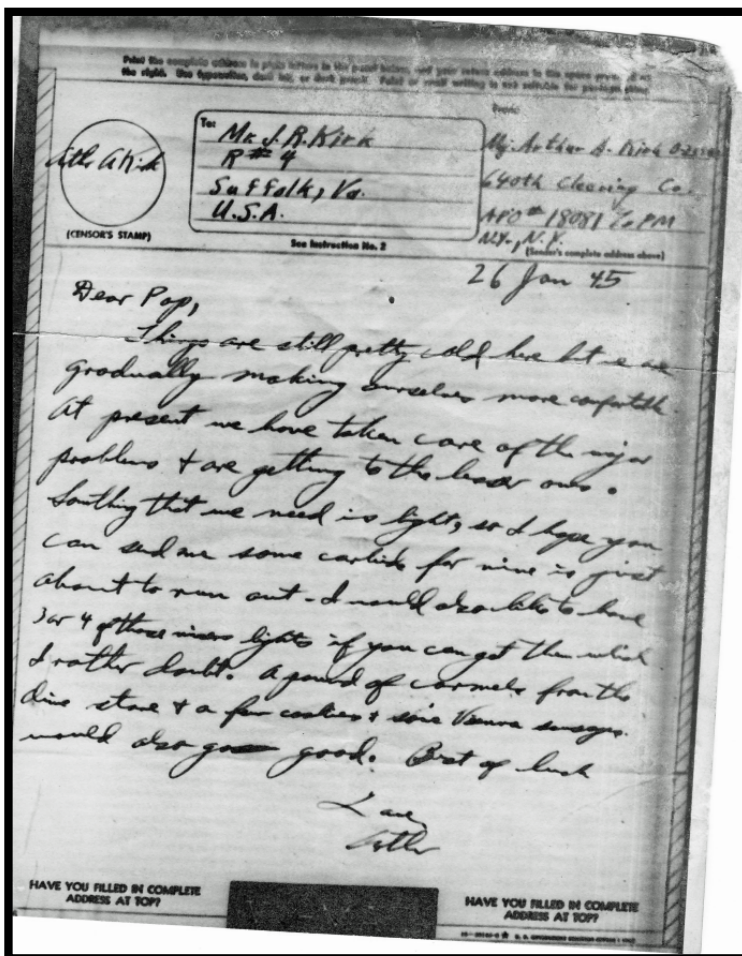 Print the complete address in plain letters in the panel below, and your return address in the space provided on
the right. Use typewriter, dark ink, or dark pencil. Faint or small writing is not suitable for photographing.
To:
Mr. J. R. Kirk
R # 4
Suffolk, Va.
U.S.A.
From:
Mj. Arthur A. Kirk
640th Clearing Co.
APO # 18081 % PM
N.Y., N.Y.
(Sender's complete address above)
Arthur A Kirk
(CENSOR'S STAMP)
See Instruction No. 2
26 Jan 45
Dear Pop,
Things are still pretty cold here but we are
gradually making ourselves more comfortable.
At present we have taken care of the major
problems + are getting to the lesser ones.
Something that we need is light, so I hope you
can send me some carbide for mine is just
about to run out - I would also like to have
3 or 4 of those miners lights if you can get them which
I rather doubt. A pound of carmels from the
dime store + a few cookies + some Vienna sausages
would also go good. Best of luck
Love,
Arthur
HAVE YOU FILLED IN COMPLETE
ADDRESS AT TOP?
HAVE YOU FILLED IN COMPLETE
ADDRESS AT TOP?